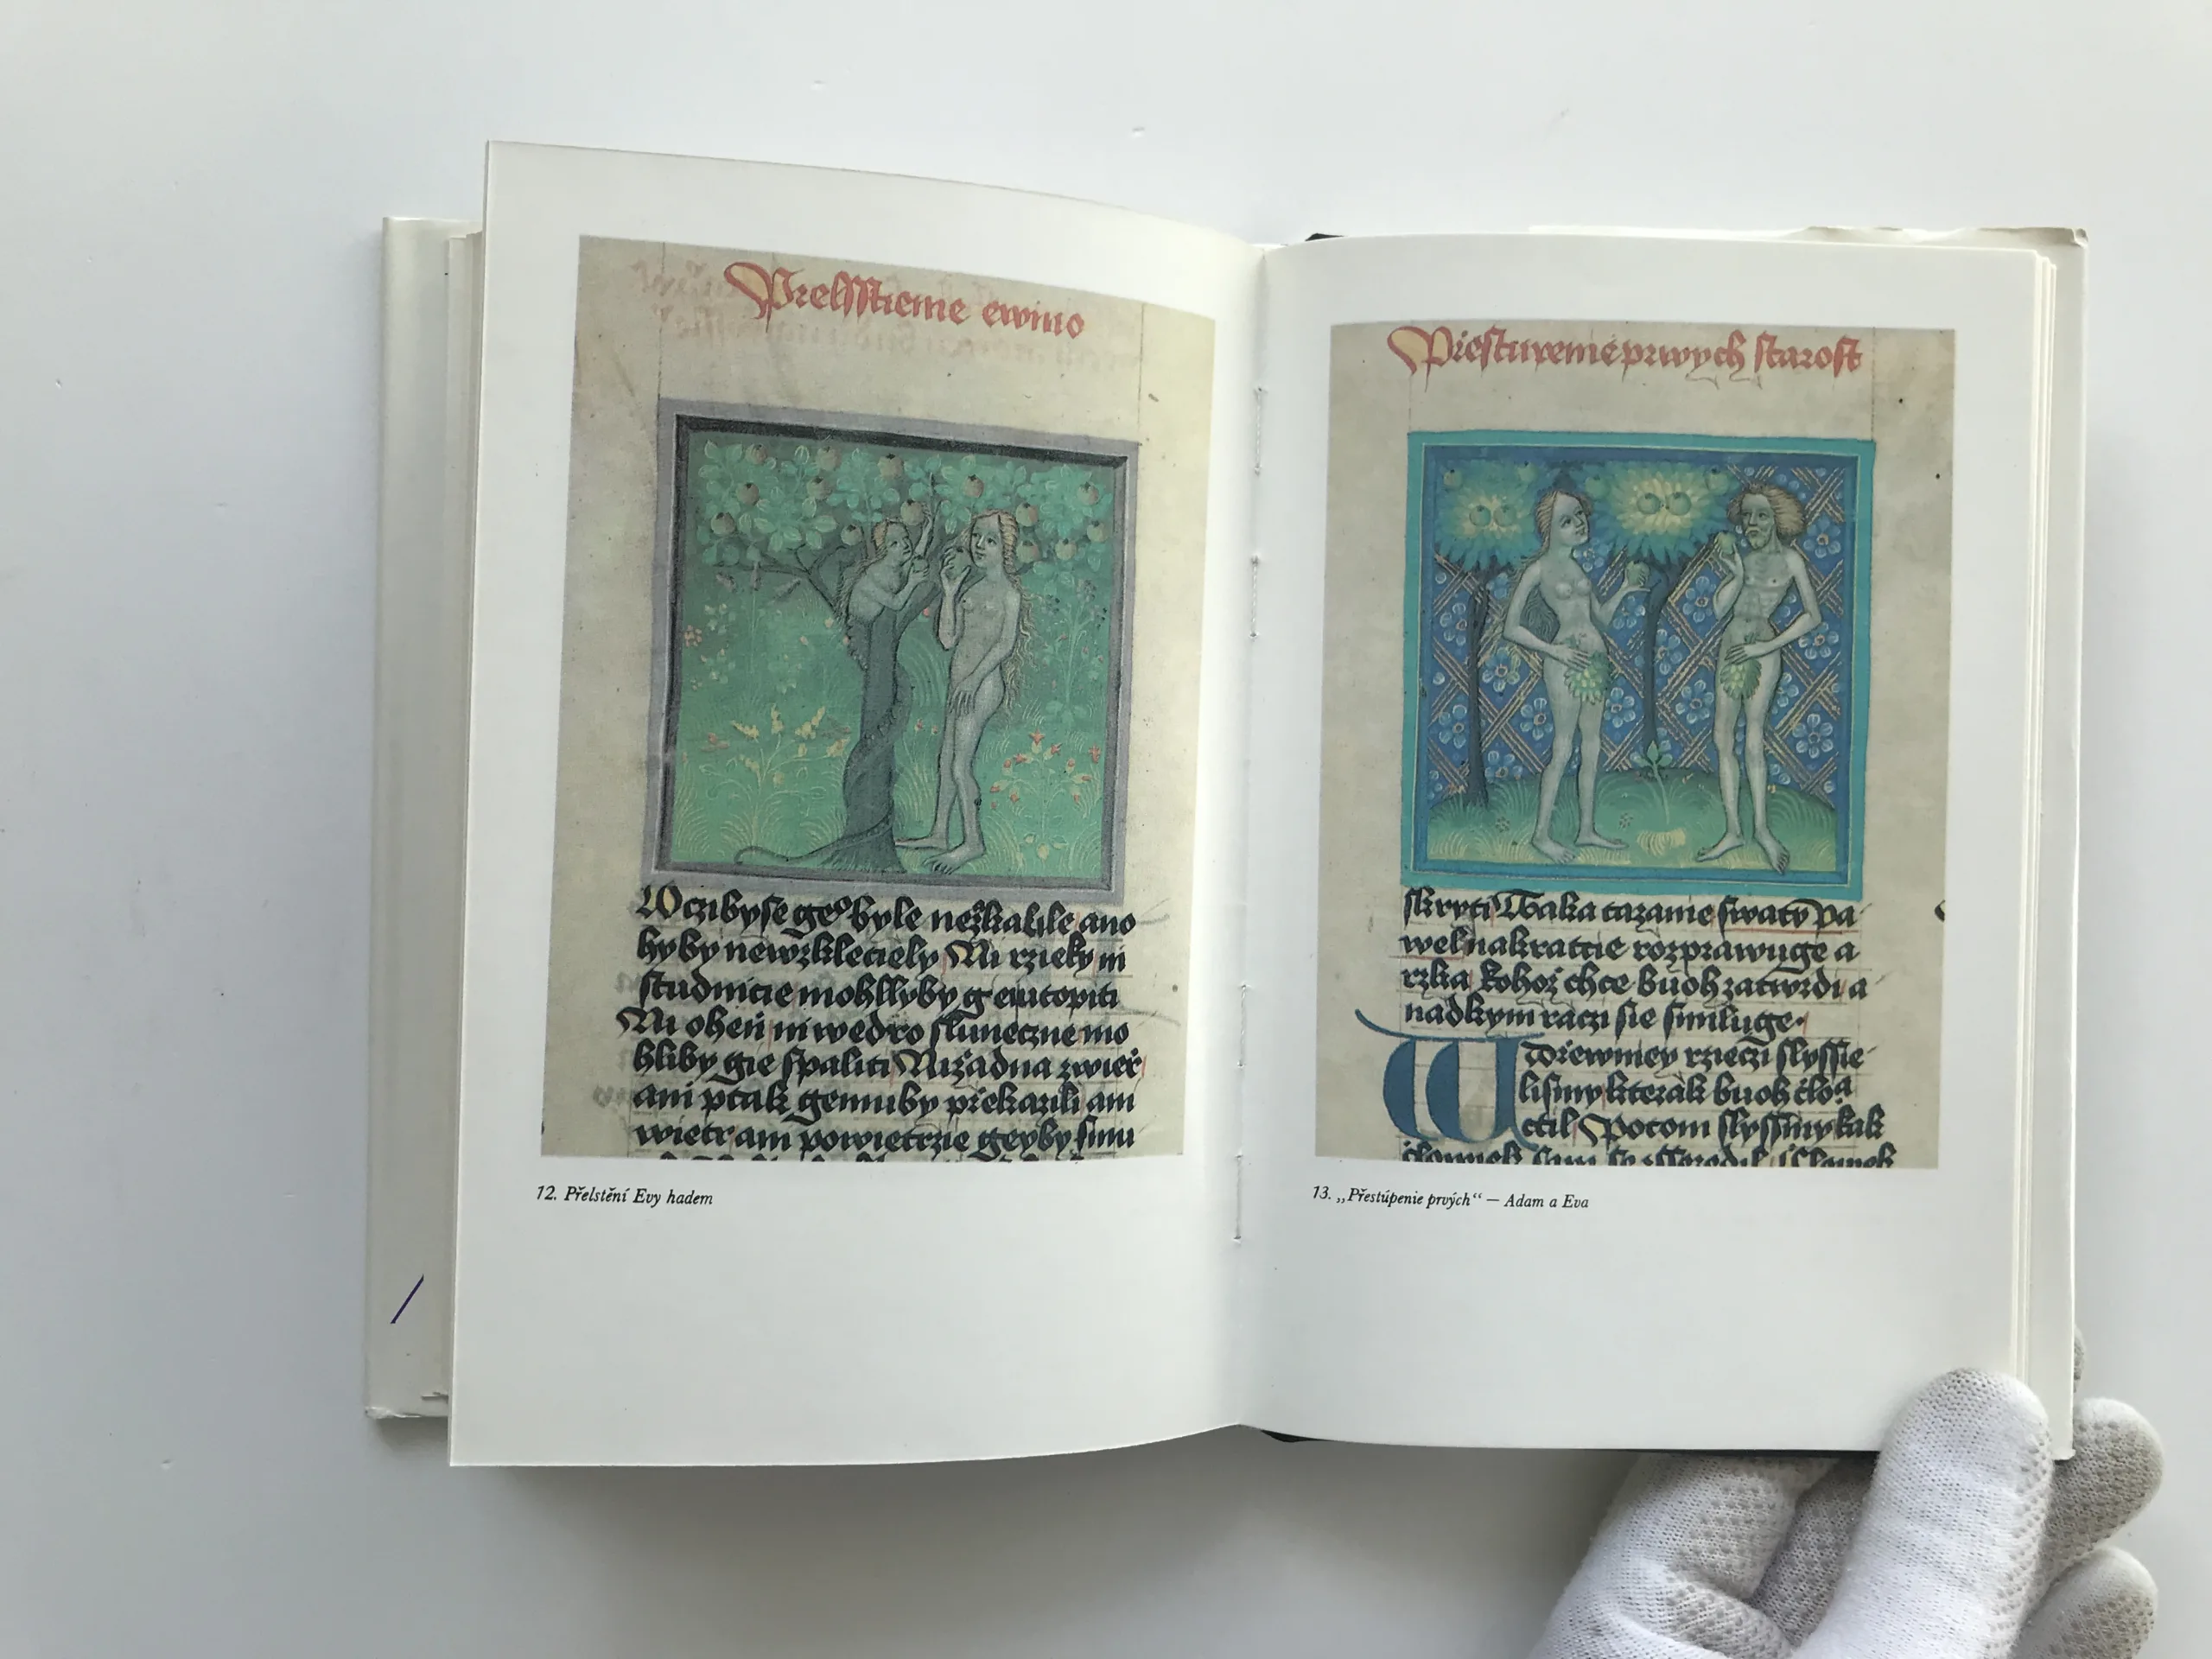 Prelsstienie ewino
W czibyse geo byle nezkalile ano
hyby newzkleciely Ni rzieky ni
studnicie mohllyby g eiutopiti
Ni oheň ni wedro sluneczne mo
hliby gie spaliti Nižádna zwieř
ani ptak gemuby překazili ani
wietr ani powietrzie geyby simu
12. Přelstění Evy hadem
Přestupenie prwych starost
skryti Tbaka tazanie swaty Pa
wel nakratcie rozprawuge a
rzka kohož chce buoh zatwrdi a
nadkym raczi sie smiluge
W Dřewniey rzieczi slyssie
lismy kterak buoh čloa
ctil Potom slyssmy kak
13. „Přestúpenie prvých“ — Adam a Eva